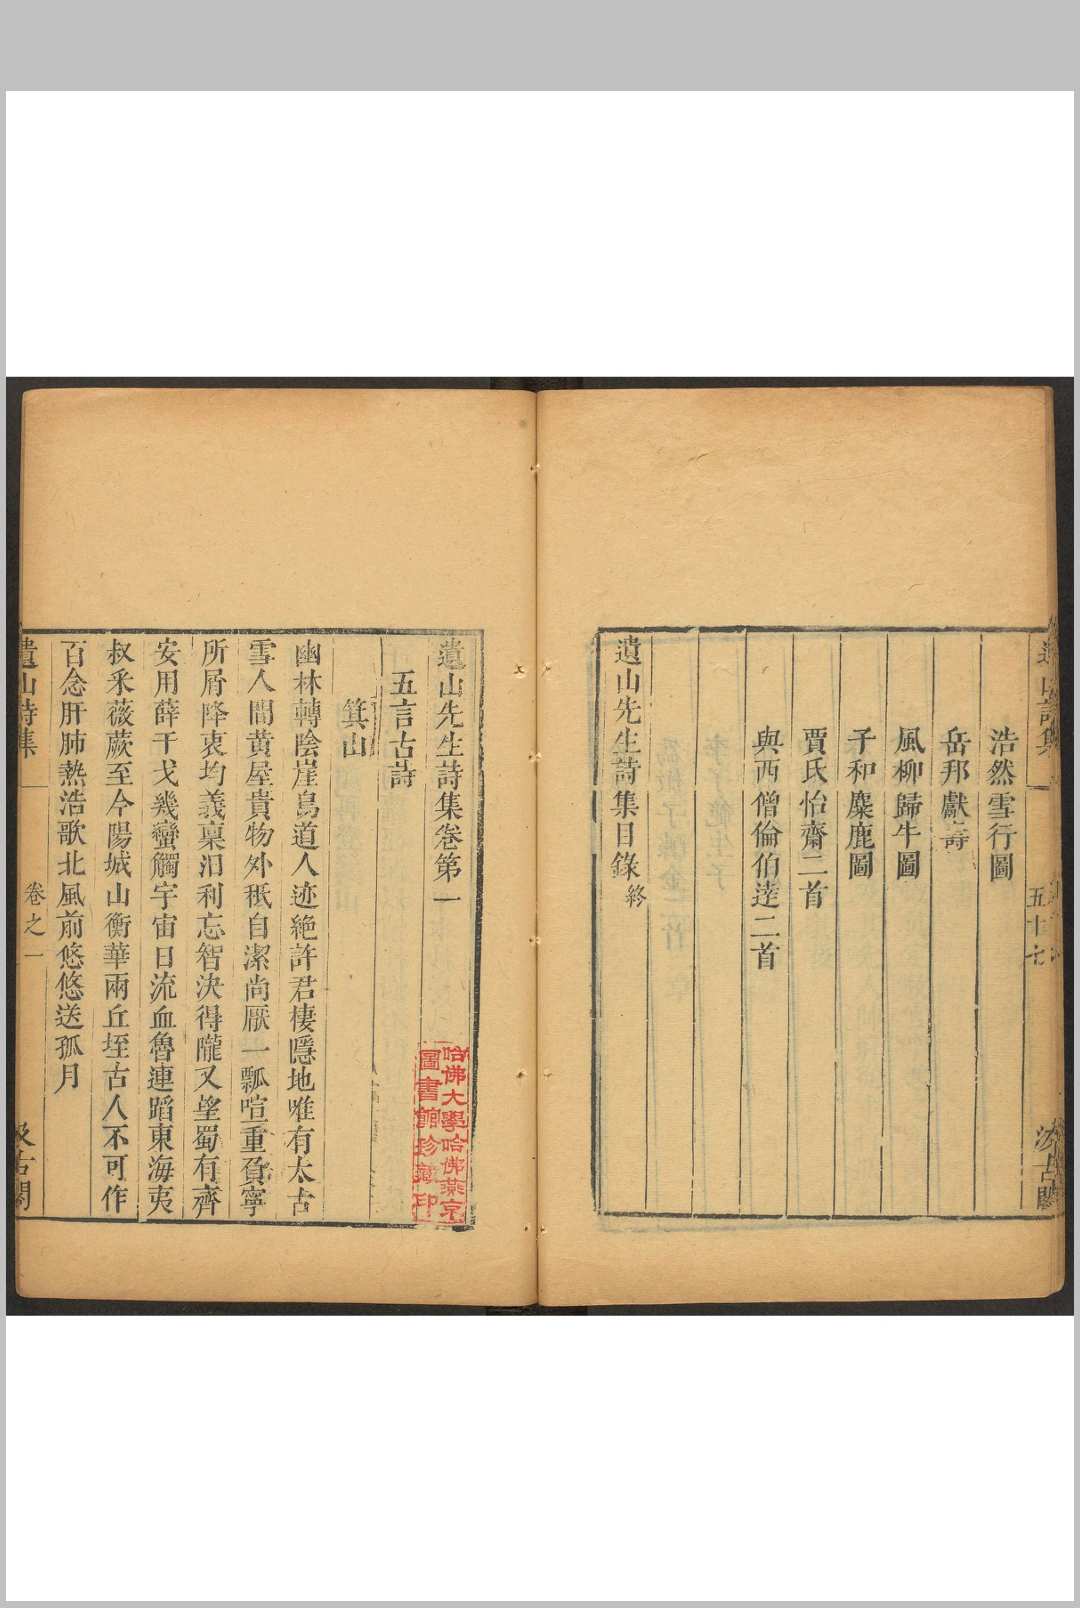 遺山詩集
五十七
汲古閣
浩然雪行圖
岳邦獻壽
風柳歸牛圖
子和麋鹿圖
賈氏怡齋二首
與西僧倫伯達二首
遺山先生詩集目錄終
遺山先生詩集卷第一
哈佛大學哈佛燕京
圖書館珍藏印
五言古詩
箕山
幽林轉陰崖鳥道人迹絶許君棲隱地唯有太古
雪人間黄屋貴物外秪自潔尚厭一瓢喧重負寧
所屑降衷均義稟汨利忘智決得隴又望蜀有齊
安用薛干戈幾蠻觸宇宙日流血魯連蹈東海夷
叔釆薇蕨至今陽城山衡華兩丘垤古人不可作
百念肝肺熱浩歌北風前悠悠送孤月
遺山詩集
卷之一
汲古閣